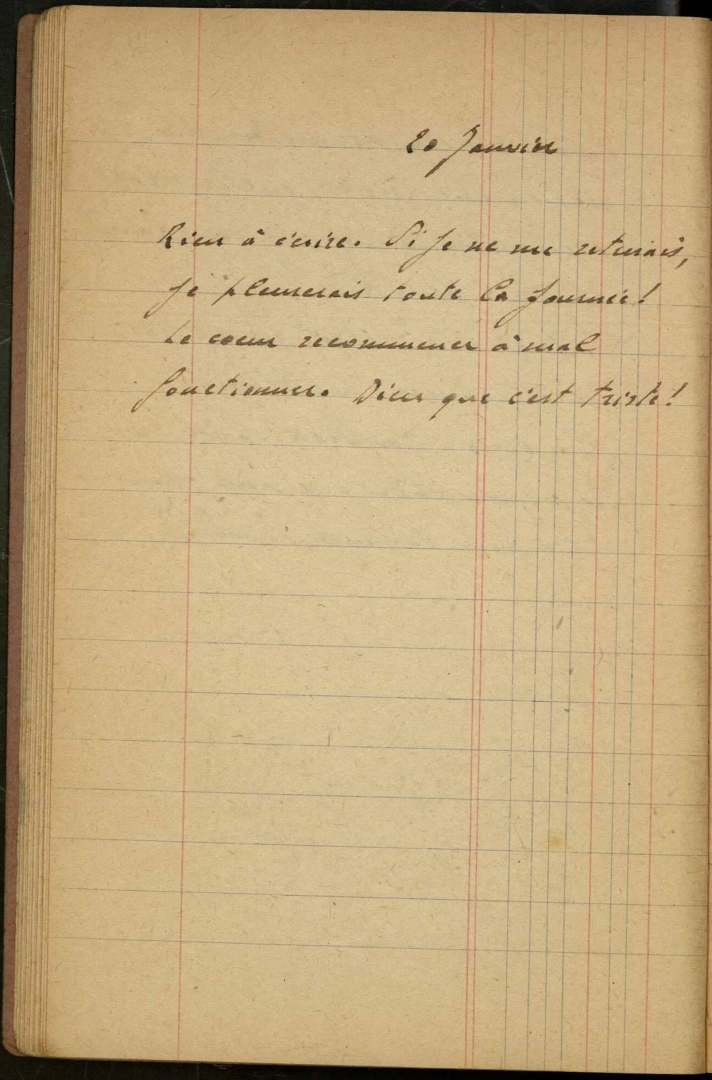 20 Janvier
Rien à écrire. Si je ne me retenais,
je pleurerais toute la journée!
Le coeur recommence à mal
fonctionner. Dieu que c'est triste!